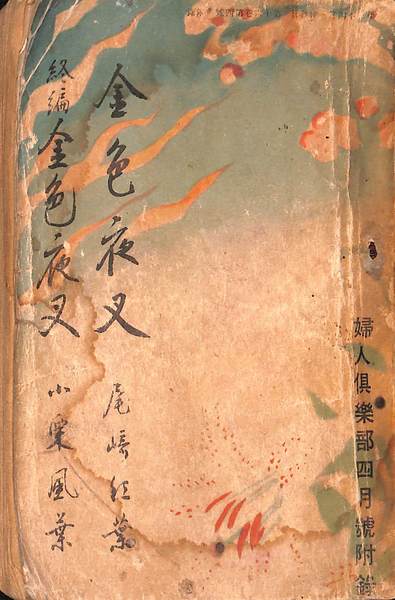 婦人倶樂部四月號附錄
金色夜叉 尾崎紅葉
終編 金色夜叉 小栗風葉